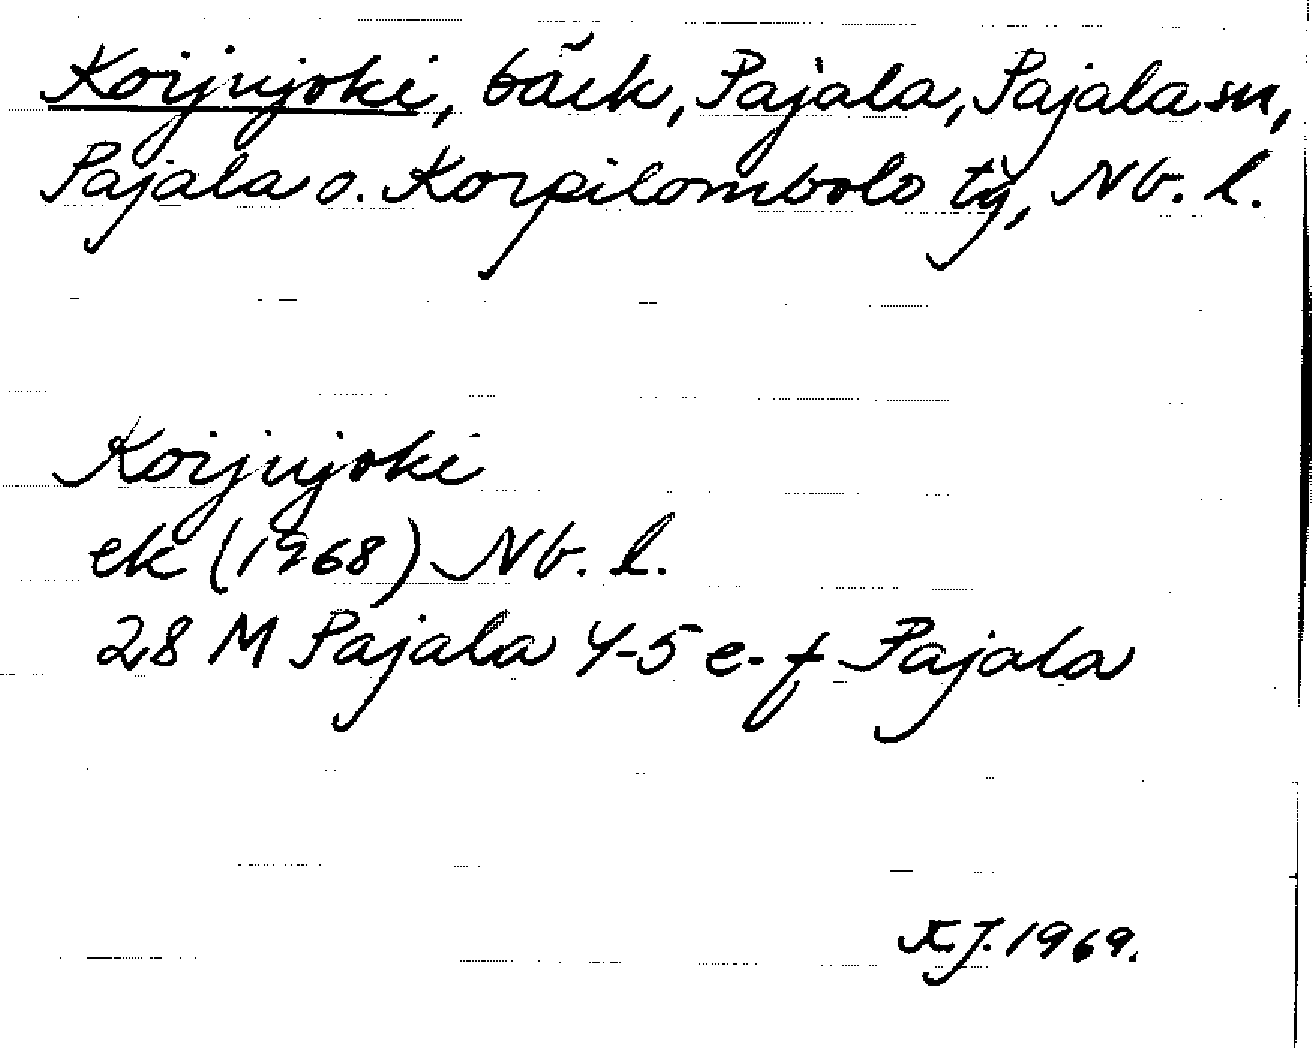 Koijujoki, bäck, Pajala, Pajala sn,
Pajala o. Korpilombolo tg, Nb. l.
Koijujoki
ek (1968) Nb. l.
28 M Pajala 4-5 e-f Pajala
K.J. 1969.